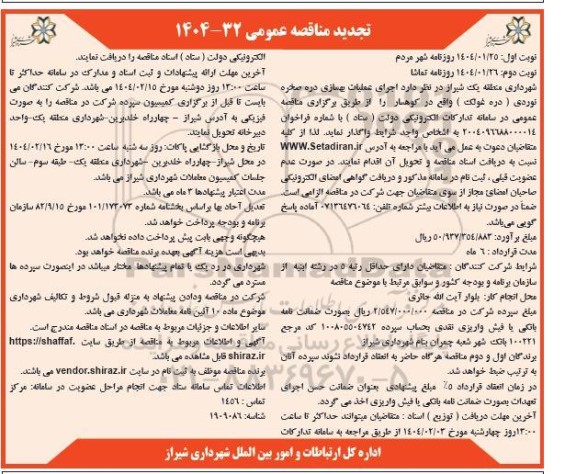 تجدید مناقصه عمومی ۳۲-۱۴۰۴
نوبت اول: ۱۴۰۴/۰۱/۲۵ روزنامه شهر مردم
نوبت دوم: ۱۴۰۴/۰۱/۲۶ روزنامه تماشا
شهرداری منطقه یک شیراز در نظر دارد اجرای عملیات بهسازی دره صخره
نوردی ( دره غولک ) واقع در کوهسار را از طریق برگزاری مناقصه
عمومی در سامانه تدارکات الکترونیکی دولت ( ستاد ) با شماره فراخوان
۲۰۰۴۰۹۶۶۸۸۰۰۰۰۱۴ به اشخاص واجد شرایط واگذار نماید. لذا از کلیه
متقاضیان دعوت به عمل می آید با مراجعه به آدرس WWW.Setadiran.ir
نسبت به دریافت اسناد مناقصه و تحویل آن اقدام نمایند. در صورت عدم
عضویت قبلی ، ثبت نام در سامانه مذکور و دریافت گواهی امضای الکترونیکی
صاحبان امضای مجاز از سوی متقاضیان جهت شرکت در مناقصه الزامی است.
ضمناً در صورت نیاز به اطلاعات بیشتر شماره تلفن: ۰۷۱۳۶۴۷۶۰۶۴ آماده پاسخ
گویی می‌باشد.
مبلغ برآورد: ۵۰/۹۳۷/۳۵۴/۸۸۳ ریال
مدت قرارداد : ۶ ماه
شرایط شرکت کنندگان : متقاضیان دارای حداقل رتبه ۵ در رشته ابنیه از
سازمان برنامه و بودجه کشور و سوابق مرتبط با موضوع مناقصه
محل انجام کار: بلوار آیت الله حائری
مبلغ سپرده شرکت در مناقصه ۲/۵۴۷/۰۰۰/۰۰۰ ریال بصورت ضمانت نامه
بانکی یا فیش واریزی نقدی بحساب سپرده ۱۰۰۸۰۵۵۰۴۷۴۲ کد مرجع
۱۰۰۲۲۱ بانک شهر شعبه چمران بنام شهرداری شیراز
برندگان اول و دوم مناقصه هرگاه حاضر به انعقاد قرارداد نشوند سپرده آنان
به ترتیب ضبط خواهد شد.
در زمان انعقاد قرارداد ۵٪ مبلغ پیشنهادی بعنوان ضمانت حسن اجرای
تعهدات بصورت ضمانت نامه بانکی یا فیش واریزی اخذ می گردد.
آخرین مهلت دریافت ( توزیع ) اسناد : متقاضیان میتوانند حداکثر تا ساعت
۱۳:۰۰ روز چهارشنبه مورخ ۱۴۰۴/۰۲/۰۳ از طریق مراجعه به سامانه تدارکات
الکترونیکی دولت ( ستاد ) اسناد مناقصه را دریافت نمایند.
آخرین مهلت ارائه پیشنهادات و ثبت اسناد و مدارک در سامانه حداکثر تا
ساعت ۱۳:۰۰ روز دوشنبه مورخ ۱۴۰۴/۰۲/۱۵ می باشد. شرکت کنندگان می
بایست تا قبل از برگزاری کمیسیون سپرده شرکت در مناقصه را به صورت
فیزیکی به آدرس شیراز – چهارراه خلدبرین-شهرداری منطقه یک-واحد
دبیرخانه تحویل نمایند.
تاریخ و محل بازگشایی پاکات: روز سه شنبه ساعت ۱۳:۰۰ مورخ ۱۴۰۴/۰۲/۱۶
در محل شیراز-چهارراه خلدبرین -شهرداری منطقه یک- طبقه سوم- سالن
جلسات کمیسیون معاملات شهرداری شیراز می باشد.
مدت اعتبار پیشنهادها ۳ ماه می باشد.
تعدیل آحاد بها براساس بخشنامه شماره ۱۰۱/۱۷۳۰۷۳ مورخ ۸۲/۹/۱۵ سازمان
برنامه و بودجه پرداخت خواهد شد.
هیچگونه وجهی بابت پیش پرداخت داده نخواهد شد.
بدیهی است هزینه آگهی بعهده برنده مناقصه خواهد بود.
شهرداری در رد یک یا تمام پیشنهادها مختار میباشد در اینصورت سپرده ها
مسترد می گردد.
شرکت در مناقصه ودادن پیشنهاد به منزله قبول شروط و تکالیف شهرداری
موضوع ماده ۱۰ آئین نامه معاملات شهرداری می باشد.
سایر اطلاعات و جزئیات مربوط به مناقصه در اسناد مناقصه مندرج است.
آگهی و اطلاعات مربوط به مناقصه از طریق سایت https://shaffaf.
shiraz.ir قابل مشاهده می باشد.
برنده مناقصه موظف به ثبت نام در سایت vendor.shiraz.ir می باشند.
اطلاعات تماس سامانه ستاد جهت انجام مراحل عضویت در سامانه: مرکز
تماس : ۱۴۵۶
شناسه: ۱۹۰۹۰۸۶
اداره کل ارتباطات و امور بین الملل شهرداری شیراز